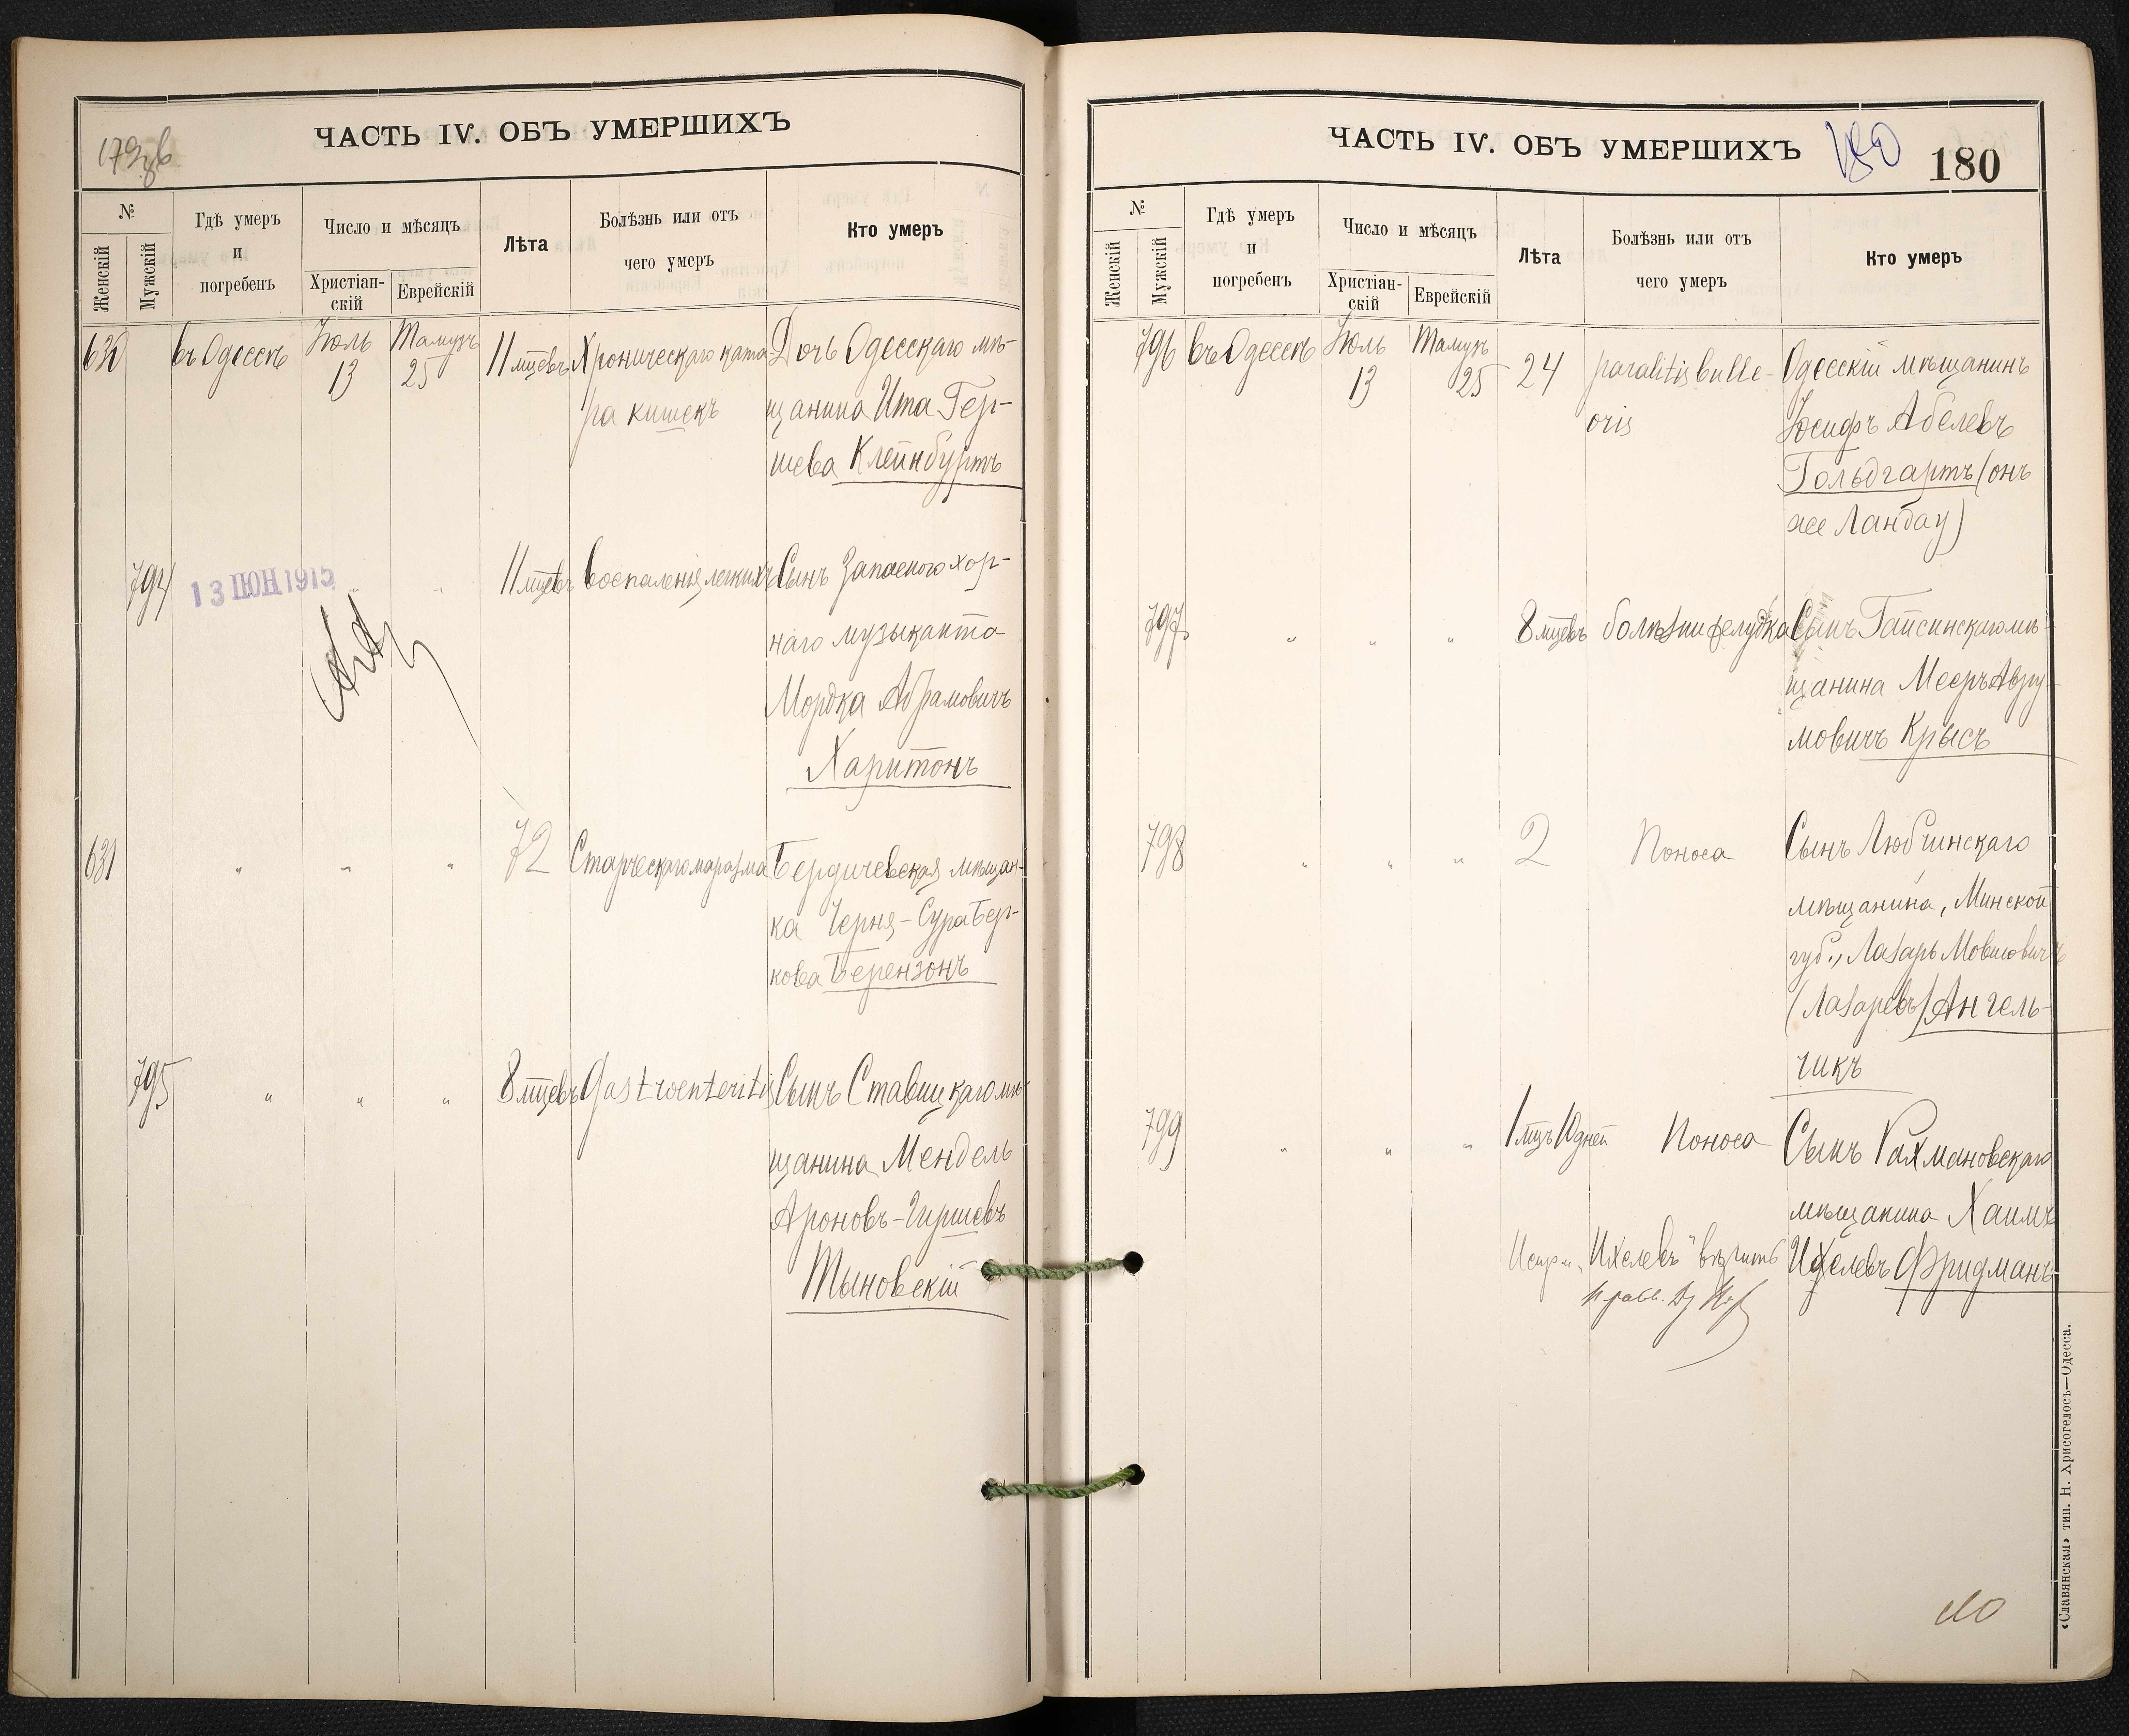 ЧАСТЬ IV. ОБЪ УМЕРШИХЪ
№
Женскій
Мужскій
Гдѣ умеръ
и
погребенъ
Число и мѣсяцъ
Христіан-
скій
Еврейскій
Лѣта
Болѣзнь или отъ
чего умеръ
Кто умеръ
630 въ Одессѣ Іюль 13 Тамузъ 25 11 мцевъ Хроническаго ката- Дочь Одесскаго мѣ-
ра кишекъ щанина Ита Гер-
шева Клейнбуртъ
794 11 мцевъ Воспаленія легкихъ Сынъ Запасного хор-
13 ІЮН 1915
наго музыканта
Мордка Абрамовичъ
Харитонъ
631 " " " 72 Старческаго маразма Бердичевская мѣщан-
ка Черня-Сура Бер-
кова Берензонъ
795 " " " 8 мцевъ Gastroenteritis Сынъ Ставищкаго мѣ-
щанина Мендель
Ароновъ-Гиршевъ
Тыновскій
ЧАСТЬ IV. ОБЪ УМЕРШИХЪ 180 180
№
Женскій
Мужскій
Гдѣ умеръ
и
погребенъ
Число и мѣсяцъ
Христіан-
скій
Еврейскій
Лѣта
Болѣзнь или отъ
чего умеръ
Кто умеръ
796 въ Одессѣ Іюль 13 Тамузъ 25 24 paralitis bulb- Одесскій мѣщанинъ
oris Іосифъ Абелевъ
Гольдгартъ (онъ
же Ландау)
797 " " " 8 мцевъ болѣзни желудка Сынъ Гайсинскаго мѣ-
щанина Мееръ Авру-
мовичъ Крысъ
798 " " " 2 Поноса Сынъ Любчинскаго
мѣщанина, Минской
губ., Лазарь Мовшовичъ
(Лазаревъ) Ангель-
чикъ
799 " " " 1 мцъ 10 дней Поноса Сынъ Рахмановскаго
мѣщанина Хаимъ
Испр. "Ихелевъ" вѣрить Ихелевъ Фридманъ
«Славянская» тип. Н. Хрисогелосъ—Одесса.